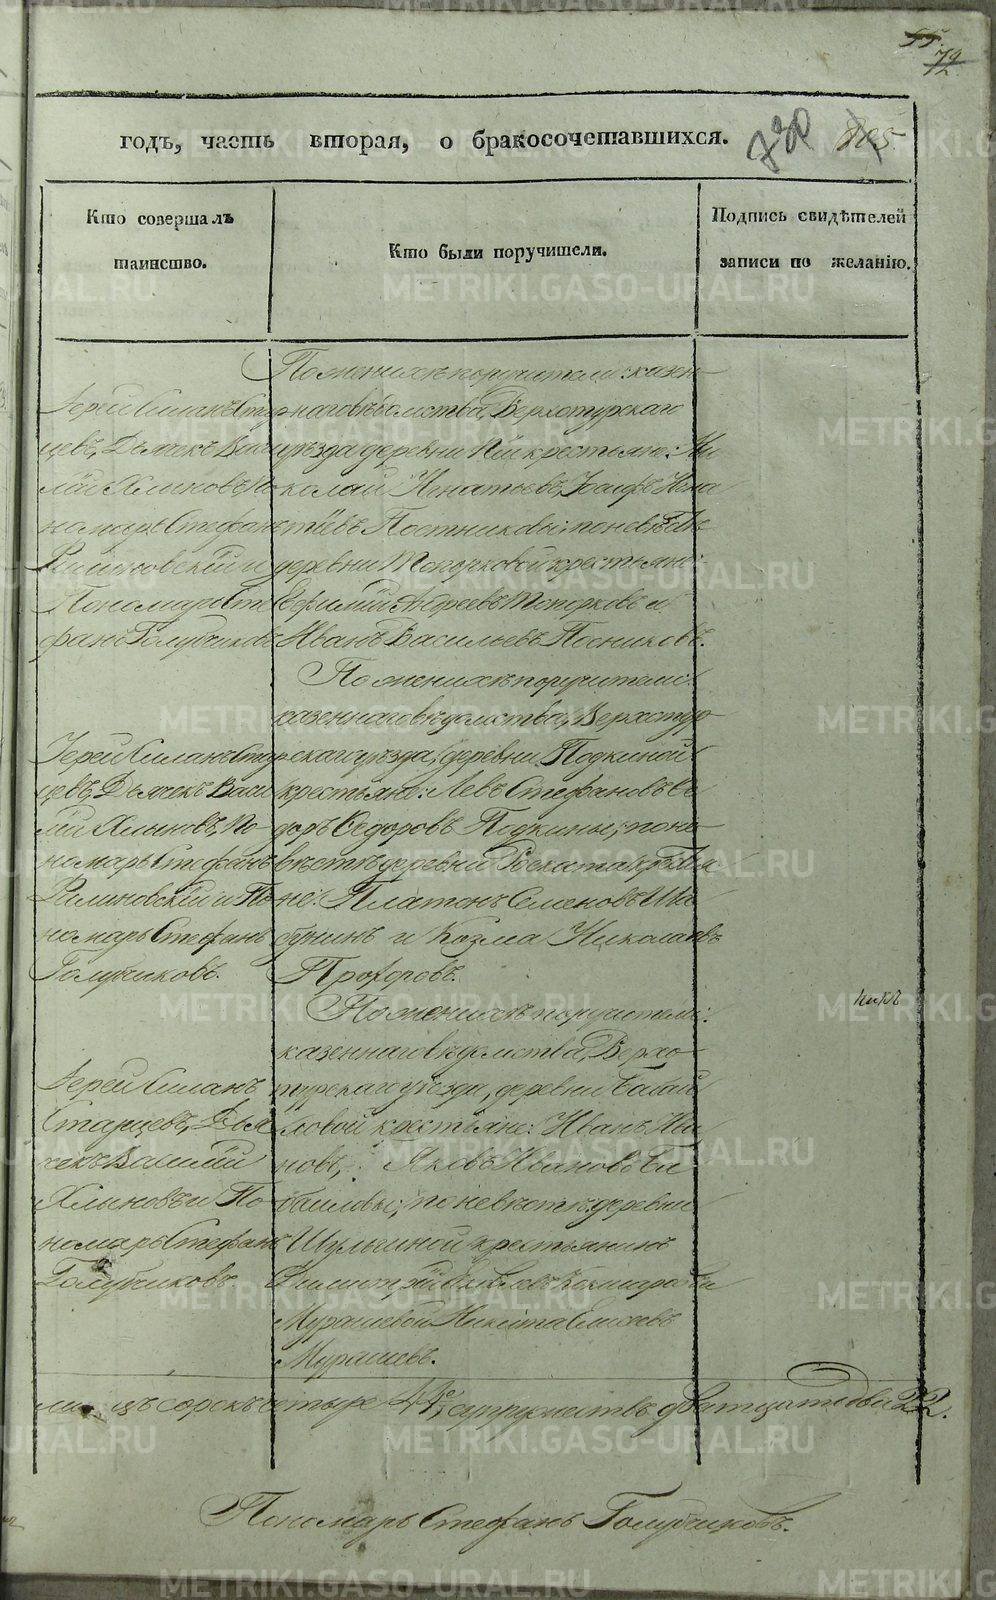 55.
72
годъ, часть вторая, о бракосочетавшихся.
720
805
Кто совершалъ
таинство.
Кто были поручители.
Подпись свидѣтелей
записи по желанію.
Іерей Силанъ Стар-
цевъ, Дьячекъ Васи-
лій Хлыновъ, По-
номарь Стефанъ
Пономарь Сте-
фанъ Голубчиковъ
По женихѣ поручители: казен-
наго вѣдомства, Верхотурскаго
уѣзда деревни крестьяне: Ни-
колай Игнатьевъ, Игна-
тьевъ Постниковы; по невѣстѣ
деревни Топорковой крестьяне:
Ефимій Андреевъ Топорковъ и
Иванъ Васильевъ Посниковъ.
Іерей Силанъ Стар-
цевъ, Дьячекъ Васи-
лій Хлыновъ, По-
номарь Стефанъ
и По-
номарь Стефанъ
Голубчиковъ.
По женихѣ поручители:
казеннаго вѣдомства, Верхотур-
скаго уѣзда, деревни Подкиной
крестьяне: Левъ Стефановъ Ѳе-
доръ Ѳедоровъ Подкины; по не-
вѣстѣ деревни
Платонъ Семеновъ Ши-
бунинъ и Козма Николаевъ
Прохоровъ.
нѣтъ
Іерей Силанъ
Старцевъ, Дья-
чекъ Василій
Хлыновъ и По-
номарь Стефанъ
Голубчиковъ
По женихѣ поручители:
казеннаго вѣдомства, Верхо-
турскаго уѣзда, деревни
крестьяне: Иванъ Ива-
новъ, Яковъ Ивановъ
по невѣстѣ деревни
Шулгиной крестьянинъ
Димитрій
Мурашевой Никита Елисѣевъ
Мурашевъ.
лицъ сорокъ четыре 44, супружествъ двадцать два 22.
Пономарь Стефанъ Голубчиковъ.
METRIKI.GASO-URAL.RU